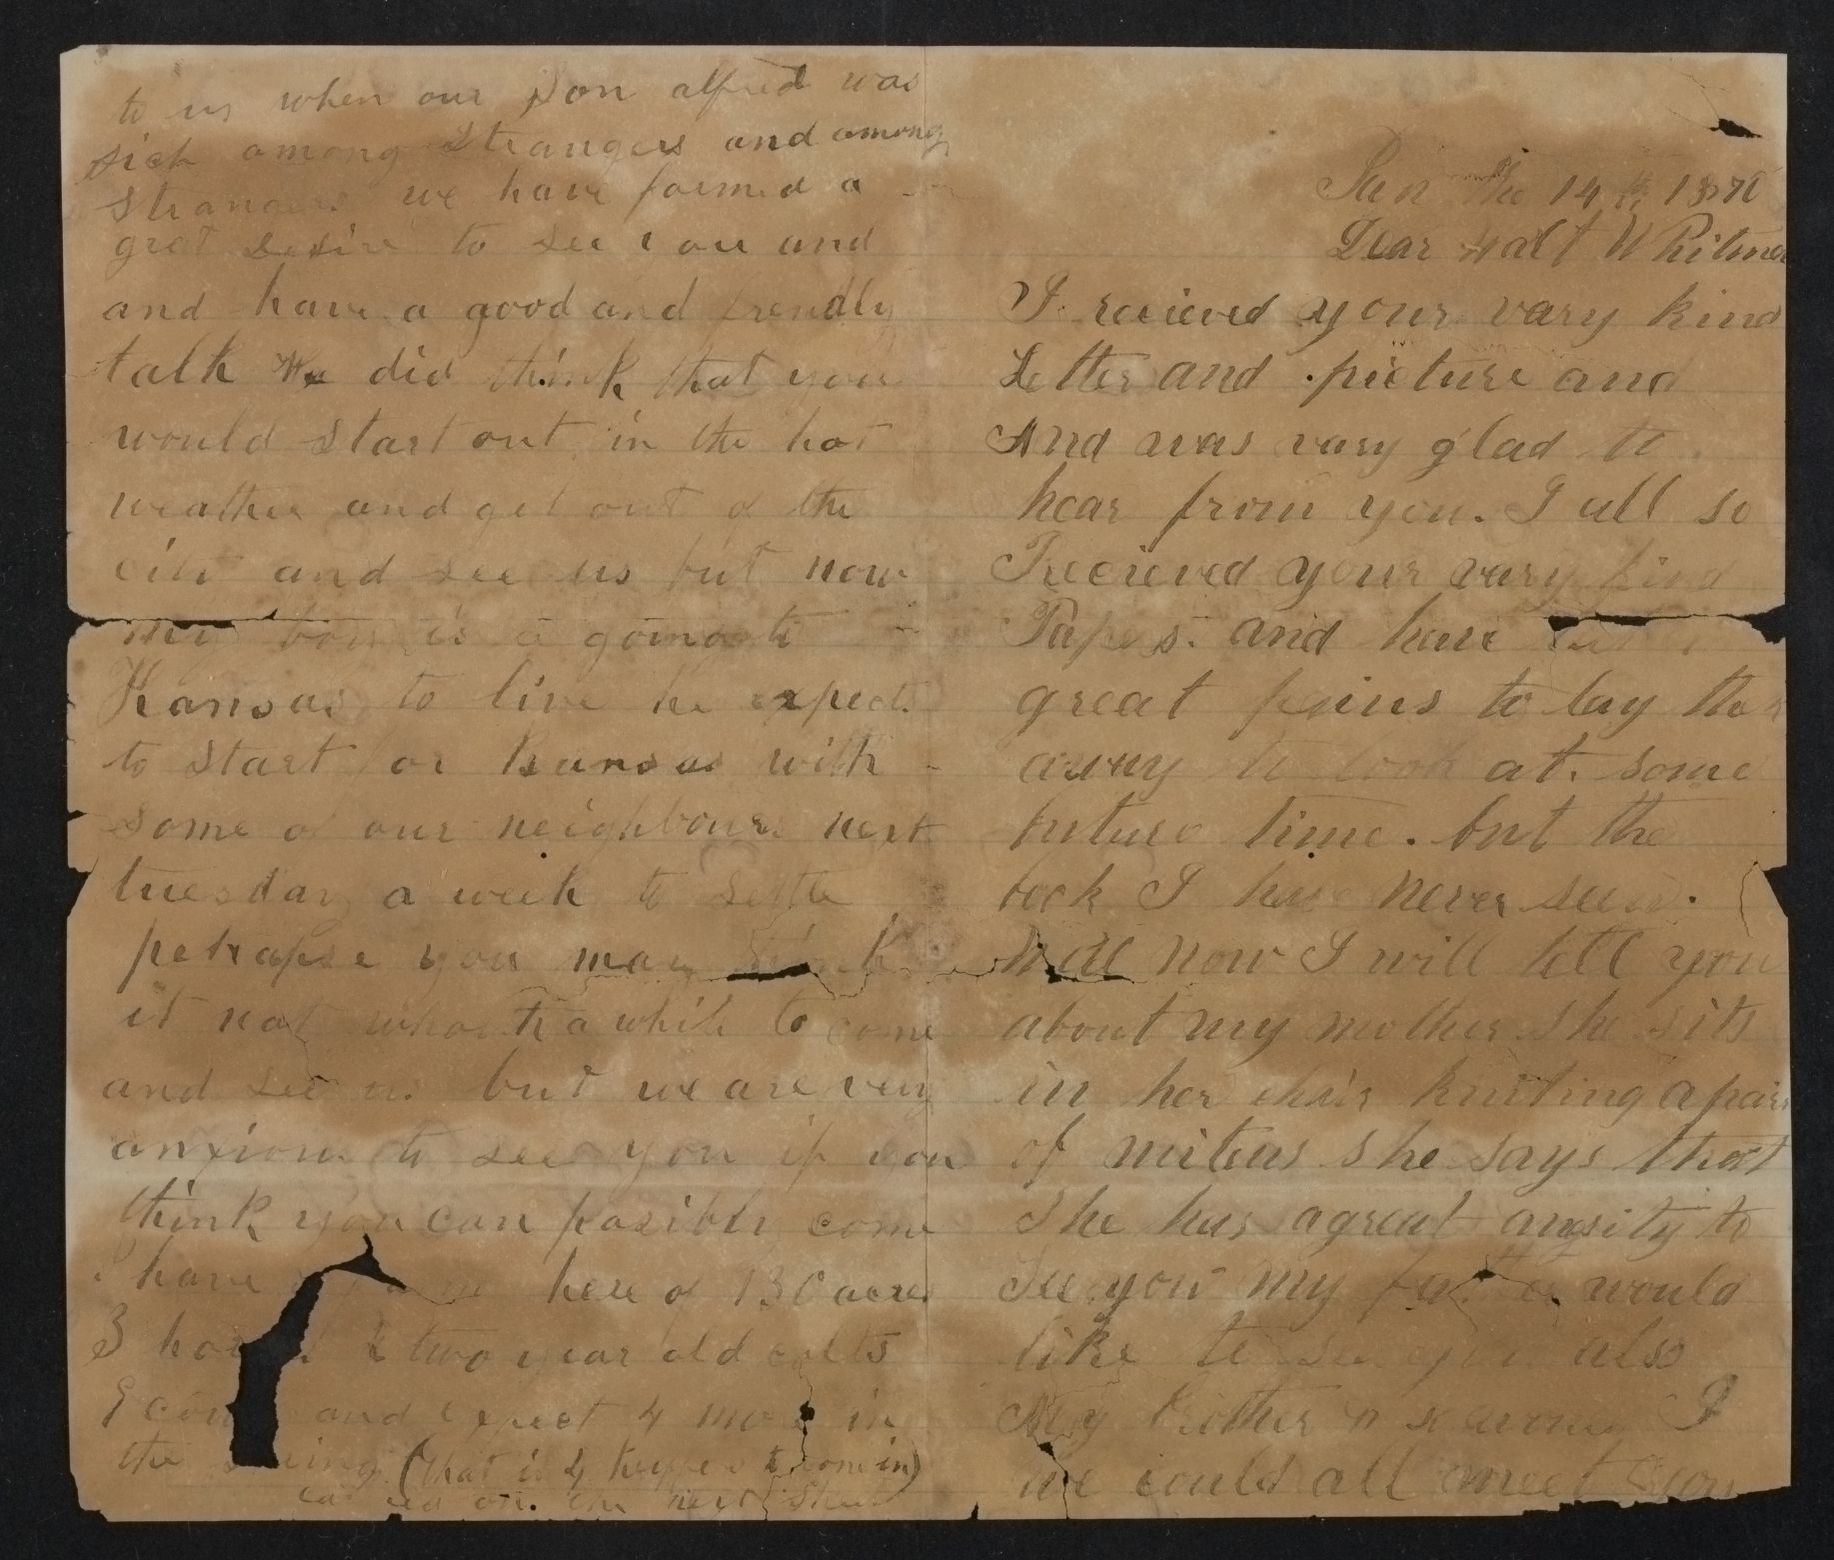 Dear Walt Whitman
I recieved your vary kind
Letter and picture and
And was vary glad to
hear from you. I all so
Recieved your vary kind
Papers. and have
great pains to lay them
away to look at. some
future time. but the
book I have never seen.
well now I will tell you
about my mother she sits
in her chair kniting a pair
of mitens she says that
She has a great anxsity to
See you my father would
like to see you also
My brother I
we could all meet you
to us when our Son alfred was
sick among Strangers and among
Strangers we have formed a
grat desire to see you and
and have a good and frendly
talk We did think that you
would start out in the hot
weather and get out of the
city and see us but now
my boy is a going to
Kansas to live he expects
to start for Kansas with
some of our neighbours next
tuesday a week to settle
perhapse you may think
it not whorth a while to come
and see us but we are very
anxious to see you if you
think you can posibly come
I have here of 130 acres
3 two year old colts
9 and expect 4 more in
the (that is 4 to come in)
on the next Sheet